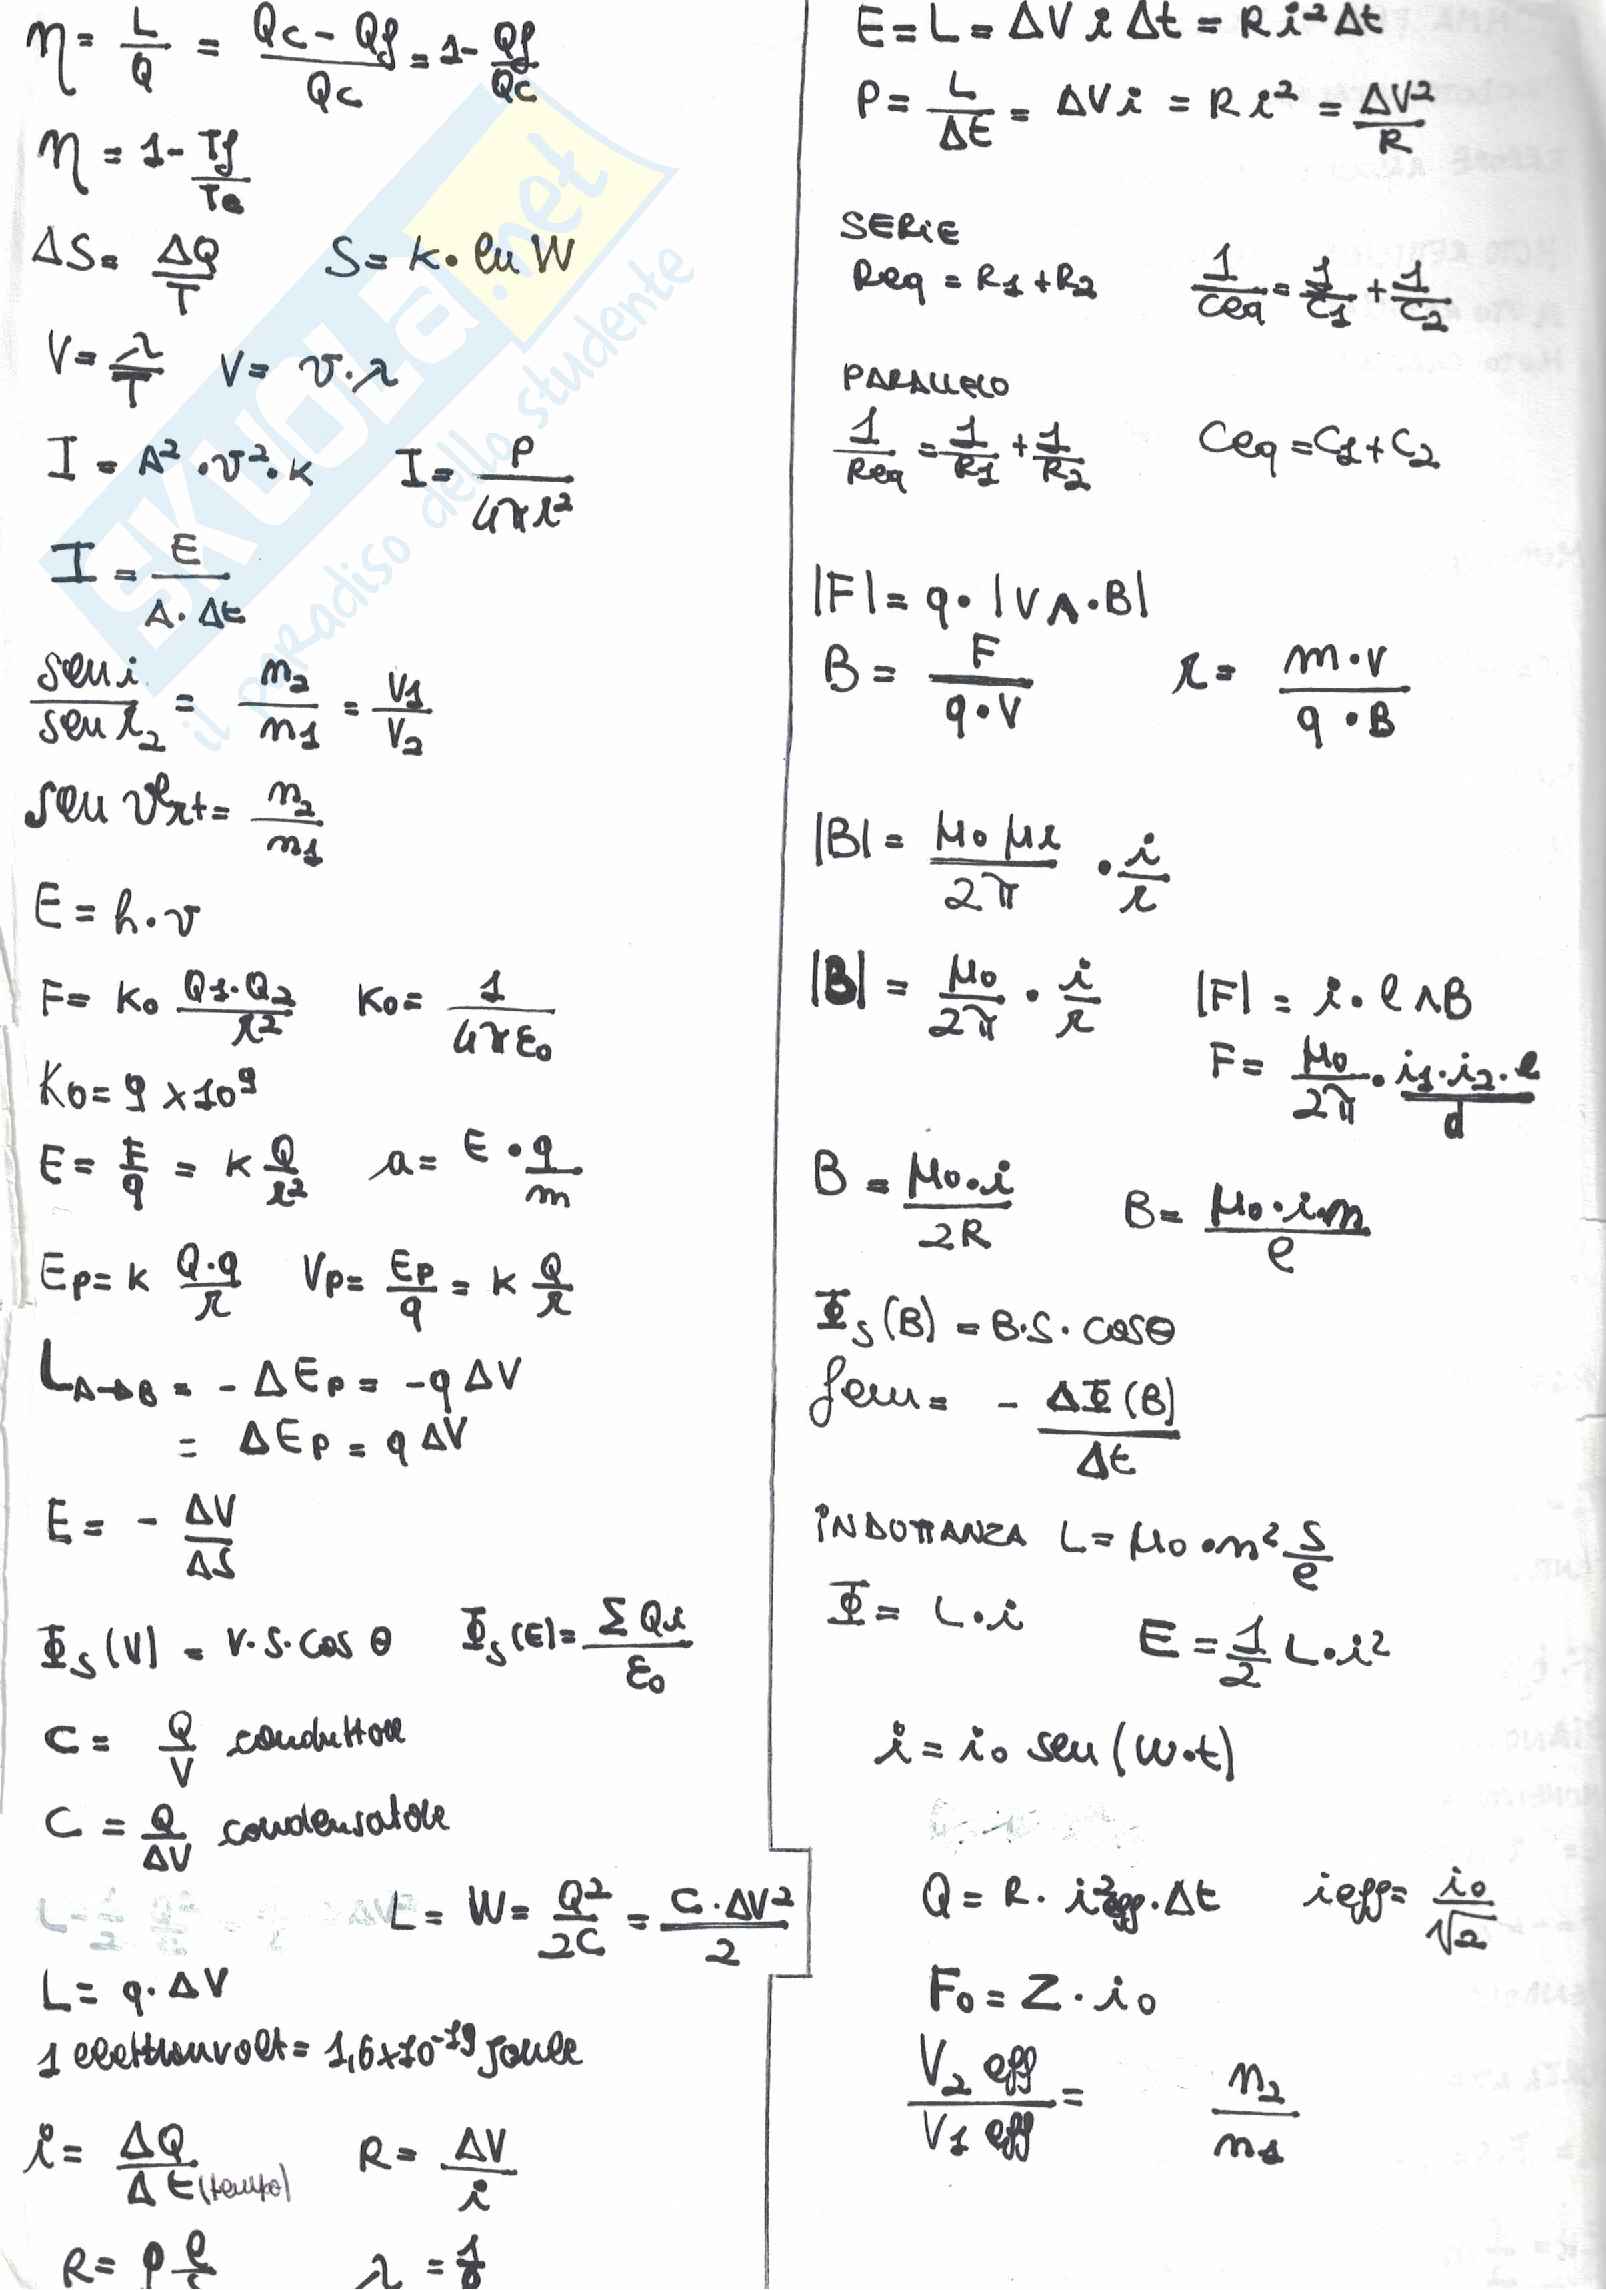 η = L/Q = (Qc - Qf)/Qc = 1 - Qf/Qc
η = 1 - Tf/Tc
ΔS = ΔQ/T    S = k · ln W
V = λ/T    V = ν · λ
I = A² · ν² · k    I = P/(4πr²)
I = E/(A · Δt)
sen i/sen r₂ = n₂/n₁ = V₁/V₂
sen θcrit = n₂/n₁
E = h · ν
F = K₀ (Q₁ · Q₂)/r²    K₀ = 1/(4πε₀)
K₀ = 9 × 10⁹
E = F/q = K Q/r²    a = E · q/m
Ep = K (Q · q)/r    Vp = Ep/q = K Q/r
L A→B = - ΔEp = -q ΔV
= ΔEp = q ΔV
E = - ΔV/ΔS
Φs (V) = V · S · cos θ    Φs (E) = Σ Qi/ε₀
C = Q/V conduttore
C = Q/ΔV condensatore
L = W = Q²/2C = (C · ΔV²)/2
L = q · ΔV
1 elettronvolt = 1,6 × 10⁻¹⁹ Joule
i = ΔQ/Δt (tempo)    R = ΔV/i
R = ρ
E = L = ΔV i Δt = R i² Δt
P = L/Δt = ΔV i = R i² = ΔV²/R
SERIE
Req = R₁ + R₂    1/Ceq = 1/C₁ + 1/C₂
PARALLELO
1/Req = 1/R₁ + 1/R₂    Ceq = C₁ + C₂
|F| = q · |V ∧ · B|
B = F/(q · V)    r = (m · v)/(q · B)
|B| = (μ₀ μr)/2π · i/r
|B| = μ₀/2π · i/r    |F| = i · l ∧ B
F = μ₀/2π · (i₁ · i₂ · l)/d
B = (μ₀ · i)/2R    B = (μ₀ · i · n)/l
Φs (B) = B · S · cos θ
fem = - ΔΦ (B)/Δt
INDUTTANZA L = μ₀ · n² S/l
Φ = L · i    E = 1/2 L · i²
i = i₀ sen (w · t)
Q = R · i²eff · Δt    ieff = i₀/√2
F₀ = Z · i₀
V₂ eff/V₁ eff = n₂/n₁
SKUOLA.net
il paradiso dello studente